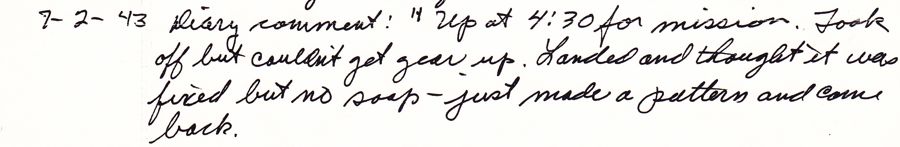 7-2-43 Diary comment: "Up at 4:30 for mission. Took
off but couldn't get gear up. Landed and thought it was
fixed but no soap - just made a pattern and come
back.